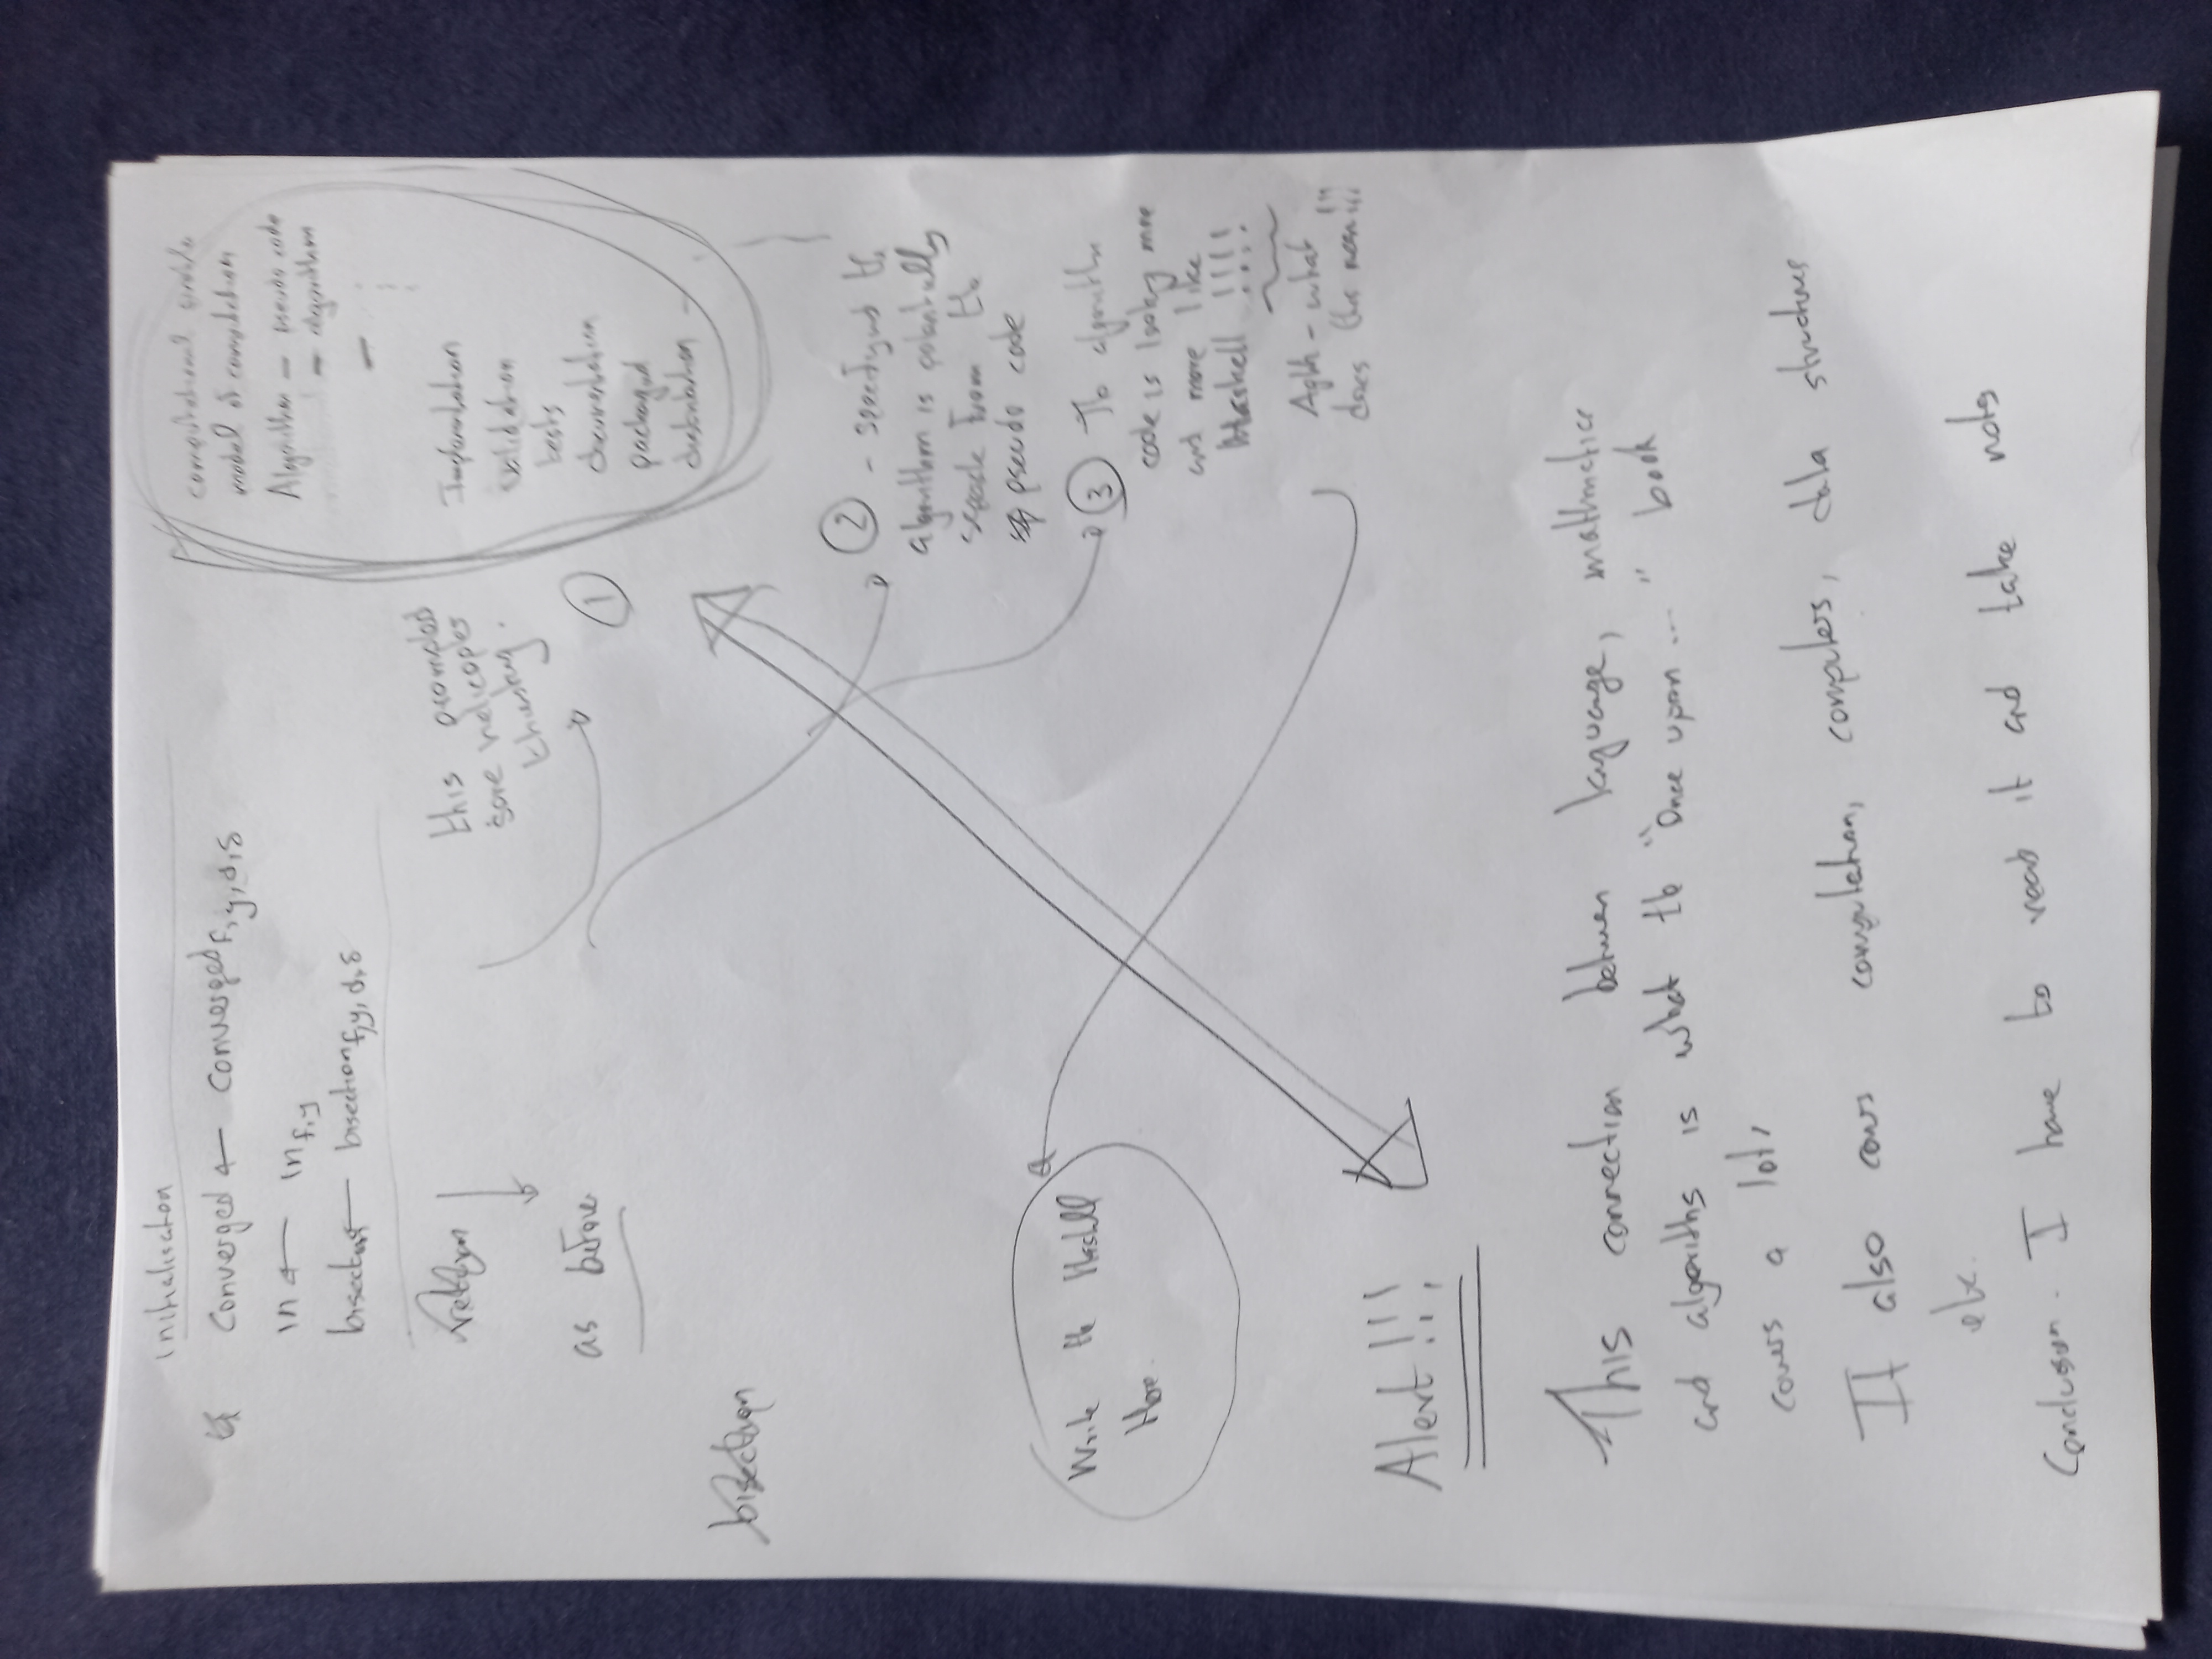 Initialisation
Converged ← Converged f, y, d, δ
in ← in f, y
bisection ← bisection f, y, d, δ
return
as before
bisection
this prompted
some helicopter
thinking.
①
computational
model of computation
Algorithm – pseudo code
– algorithm
–
Implementation
validation
tests
documentation
packaged
distribution –
② – specifying the
algorithm is potentially
separate from the
pseudo code
③ The algorithm
code is looking more
and more like
Haskell !!!!
Aghh – what
does this mean !!!
Write the Haskell
Here.
Alert !!!
This connection between language, mathematics
and algorithms is what the "Once upon ..." book
covers a lot,
It also covers computation, computers, data structures
etc.
Conclusion. I have to read it and take notes